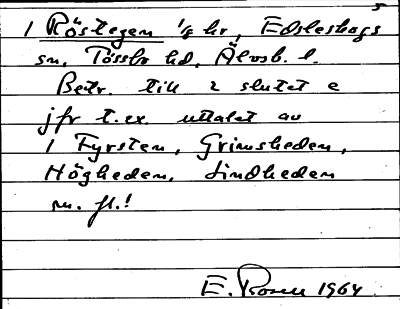 1 Röstegen 1/8 hr, Edsleskogs
sn, Tössbo hd, Älvsb. l.
Betr. till 2 slutet e
jfr t.ex. uttalet av
1 Fyrsten, Grimsheden,
Högheden, Lindheden
m. fl.!
E. Rosen 1964